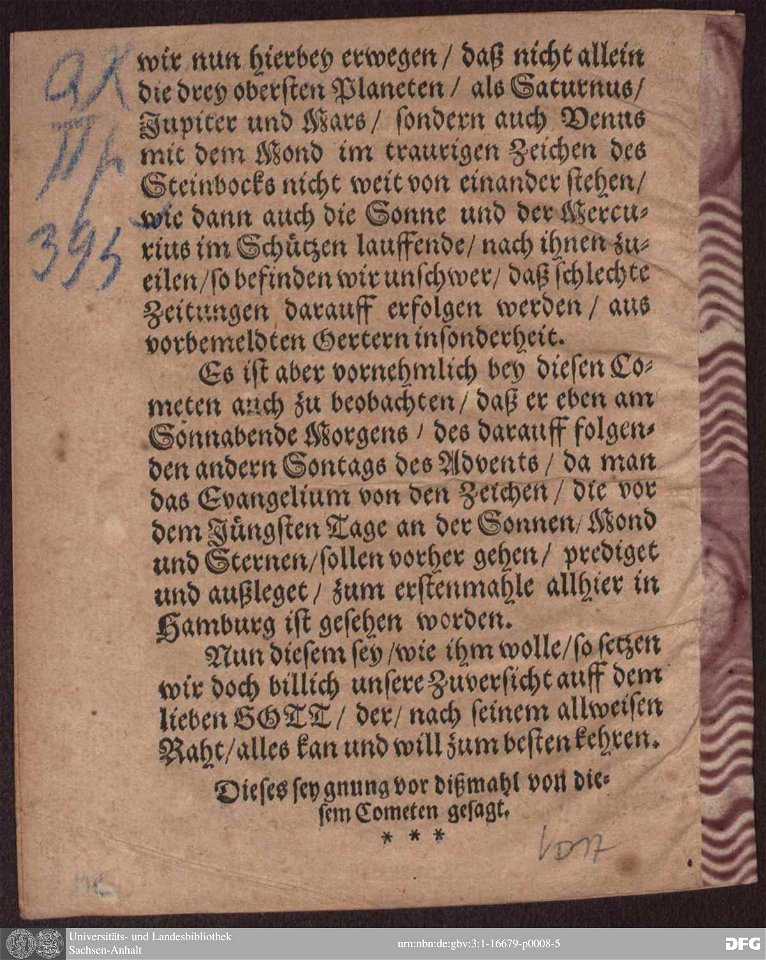 wir nun hierbey erwegen / daß nicht allein
die drey obersten Planeten / als Saturnus /
Jupiter und Mars / sondern auch Venus
mit dem Mond im traurigen Zeichen des
Steinbocks nicht weit von einander stehen /
wie dann auch die Sonne und der Mercu-
rius im Schützen lauffende / nach ihnen zu-
eilen / so befinden wir unschwer / daß schlechte
Zeitungen darauff erfolgen werden / aus
vorbemeldten Oertern insonderheit.
Es ist aber vornehmlich bey diesen Co-
meten auch zu beobachten / daß er eben am
Sonnabende Morgens / des darauff folgen-
den andern Sontags des Advents / da man
das Evangelium von den Zeichen / die vor
dem Jüngsten Tage an der Sonnen / Mond
und Sternen / sollen vorher gehen / prediget
und außleget / zum erstenmahle allhier in
Hamburg ist gesehen worden.
Nun diesem sey / wie ihm wolle / so setzen
wir doch billich unsere Zuversicht auff dem
lieben GOTT / der / nach seinem allweisen
Raht / alles kan und will zum besten kehren.
Dieses sey gnung vor dißmahl von die-
sem Cometen gesagt.
* * *
QK
IIp
395
VD17
Universitäts- und Landesbibliothek
Sachsen-Anhalt
urn:nbn:de:gbv:3:1-16679-p0008-5
DFG